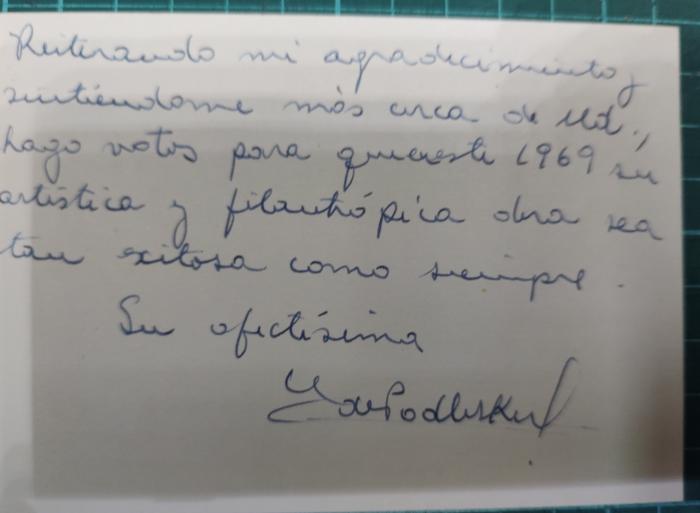 Reiterando mi agradecimiento y
sintiéndome más cerca de Ud.,
hago votos para que este 1969 su
artística y filantrópica obra sea
tan exitosa como siempre.
Su afectísima